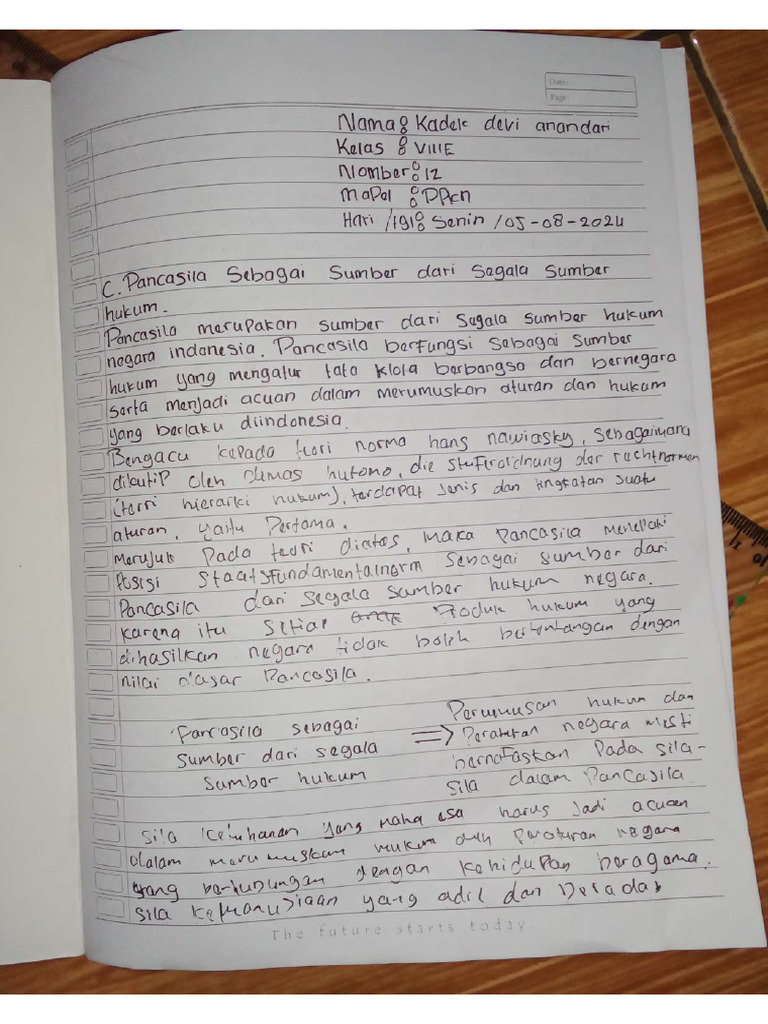 Date:
Page:
Nama : Kadek devi anandari
Kelas : VIIIE
Nomber : 12
Mapel : PPkn
Hari /tgl : Senin /05-08-2024
C. Pancasila Sebagai Sumber dari Segala Sumber
hukum.
Pancasila merupakan sumber dari Segala sumber hukum
negara indonesia. Pancasila berfungsi sebagai sumber
hukum yang mengatur tata klola berbangsa dan bernegara
serta menjadi acuan dalam merumuskan aturan dan hukum
yang berlaku diindonesia.
Bengacu kepada teori norma hans nawiasky, sebagaimana
dikutip oleh Dimas hutomo, die stuferordnung der rechtnormen
(teori hierarki hukum), terdapat Jenis dan tingkatan suatu
aturan, yaitu Pertama.
Merujuk Pada teori diatas, maka Pancasila Menempati
Posisi Staatsfundamentalnorm Sebagai sumber dari
Pancasila dari Segala sumber hukum negara.
karena itu setiap Produk hukum yang
dihasilkan negara tidak boleh bertentangan dengan
nilai dasar Pancasila.
Pancasila sebagai
sumber dari segala
sumber hukum
=> Perumusan hukum dan
Peraturan negara mesti
bernafaskan Pada sila-
sila dalam Pancasila
Sila Ketuhanan yang maha esa harus Jadi acuan
dalam merumuskan hukum dan Peraturan negara
yang berhubungan dengan kehidupan beragama.
Sila kemanusiaan yang adil dan Beradab
The future starts today.